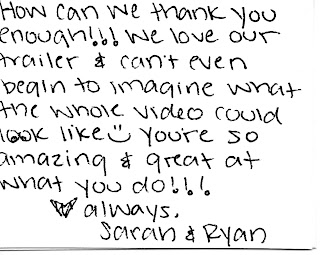 How can we thank you
enough!!! We love our
trailer & can't even
begin to imagine what
the whole video could
look like☺ you're so
amazing & great at
what you do!!!
♥ always.
Sarah & Ryan